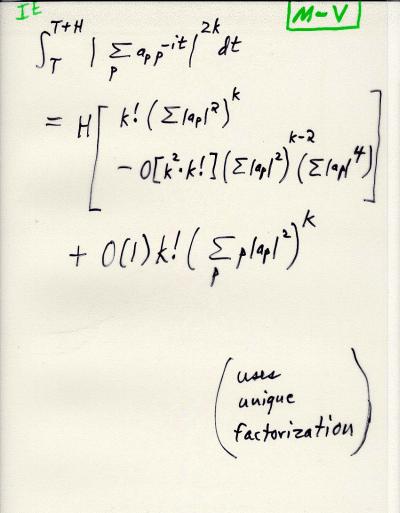 It
M-V
∫_T^{T+H} | Σ_p a_p p^{-it} |^{2k} dt
= H [ k! (Σ|a_p|²)^k
- O[k²·k!] (Σ|a_p|²)^{k-2} (Σ|a_p|⁴) ]
+ O(1) k! ( Σ_p p|a_p|² )^k
( uses
unique
factorization )